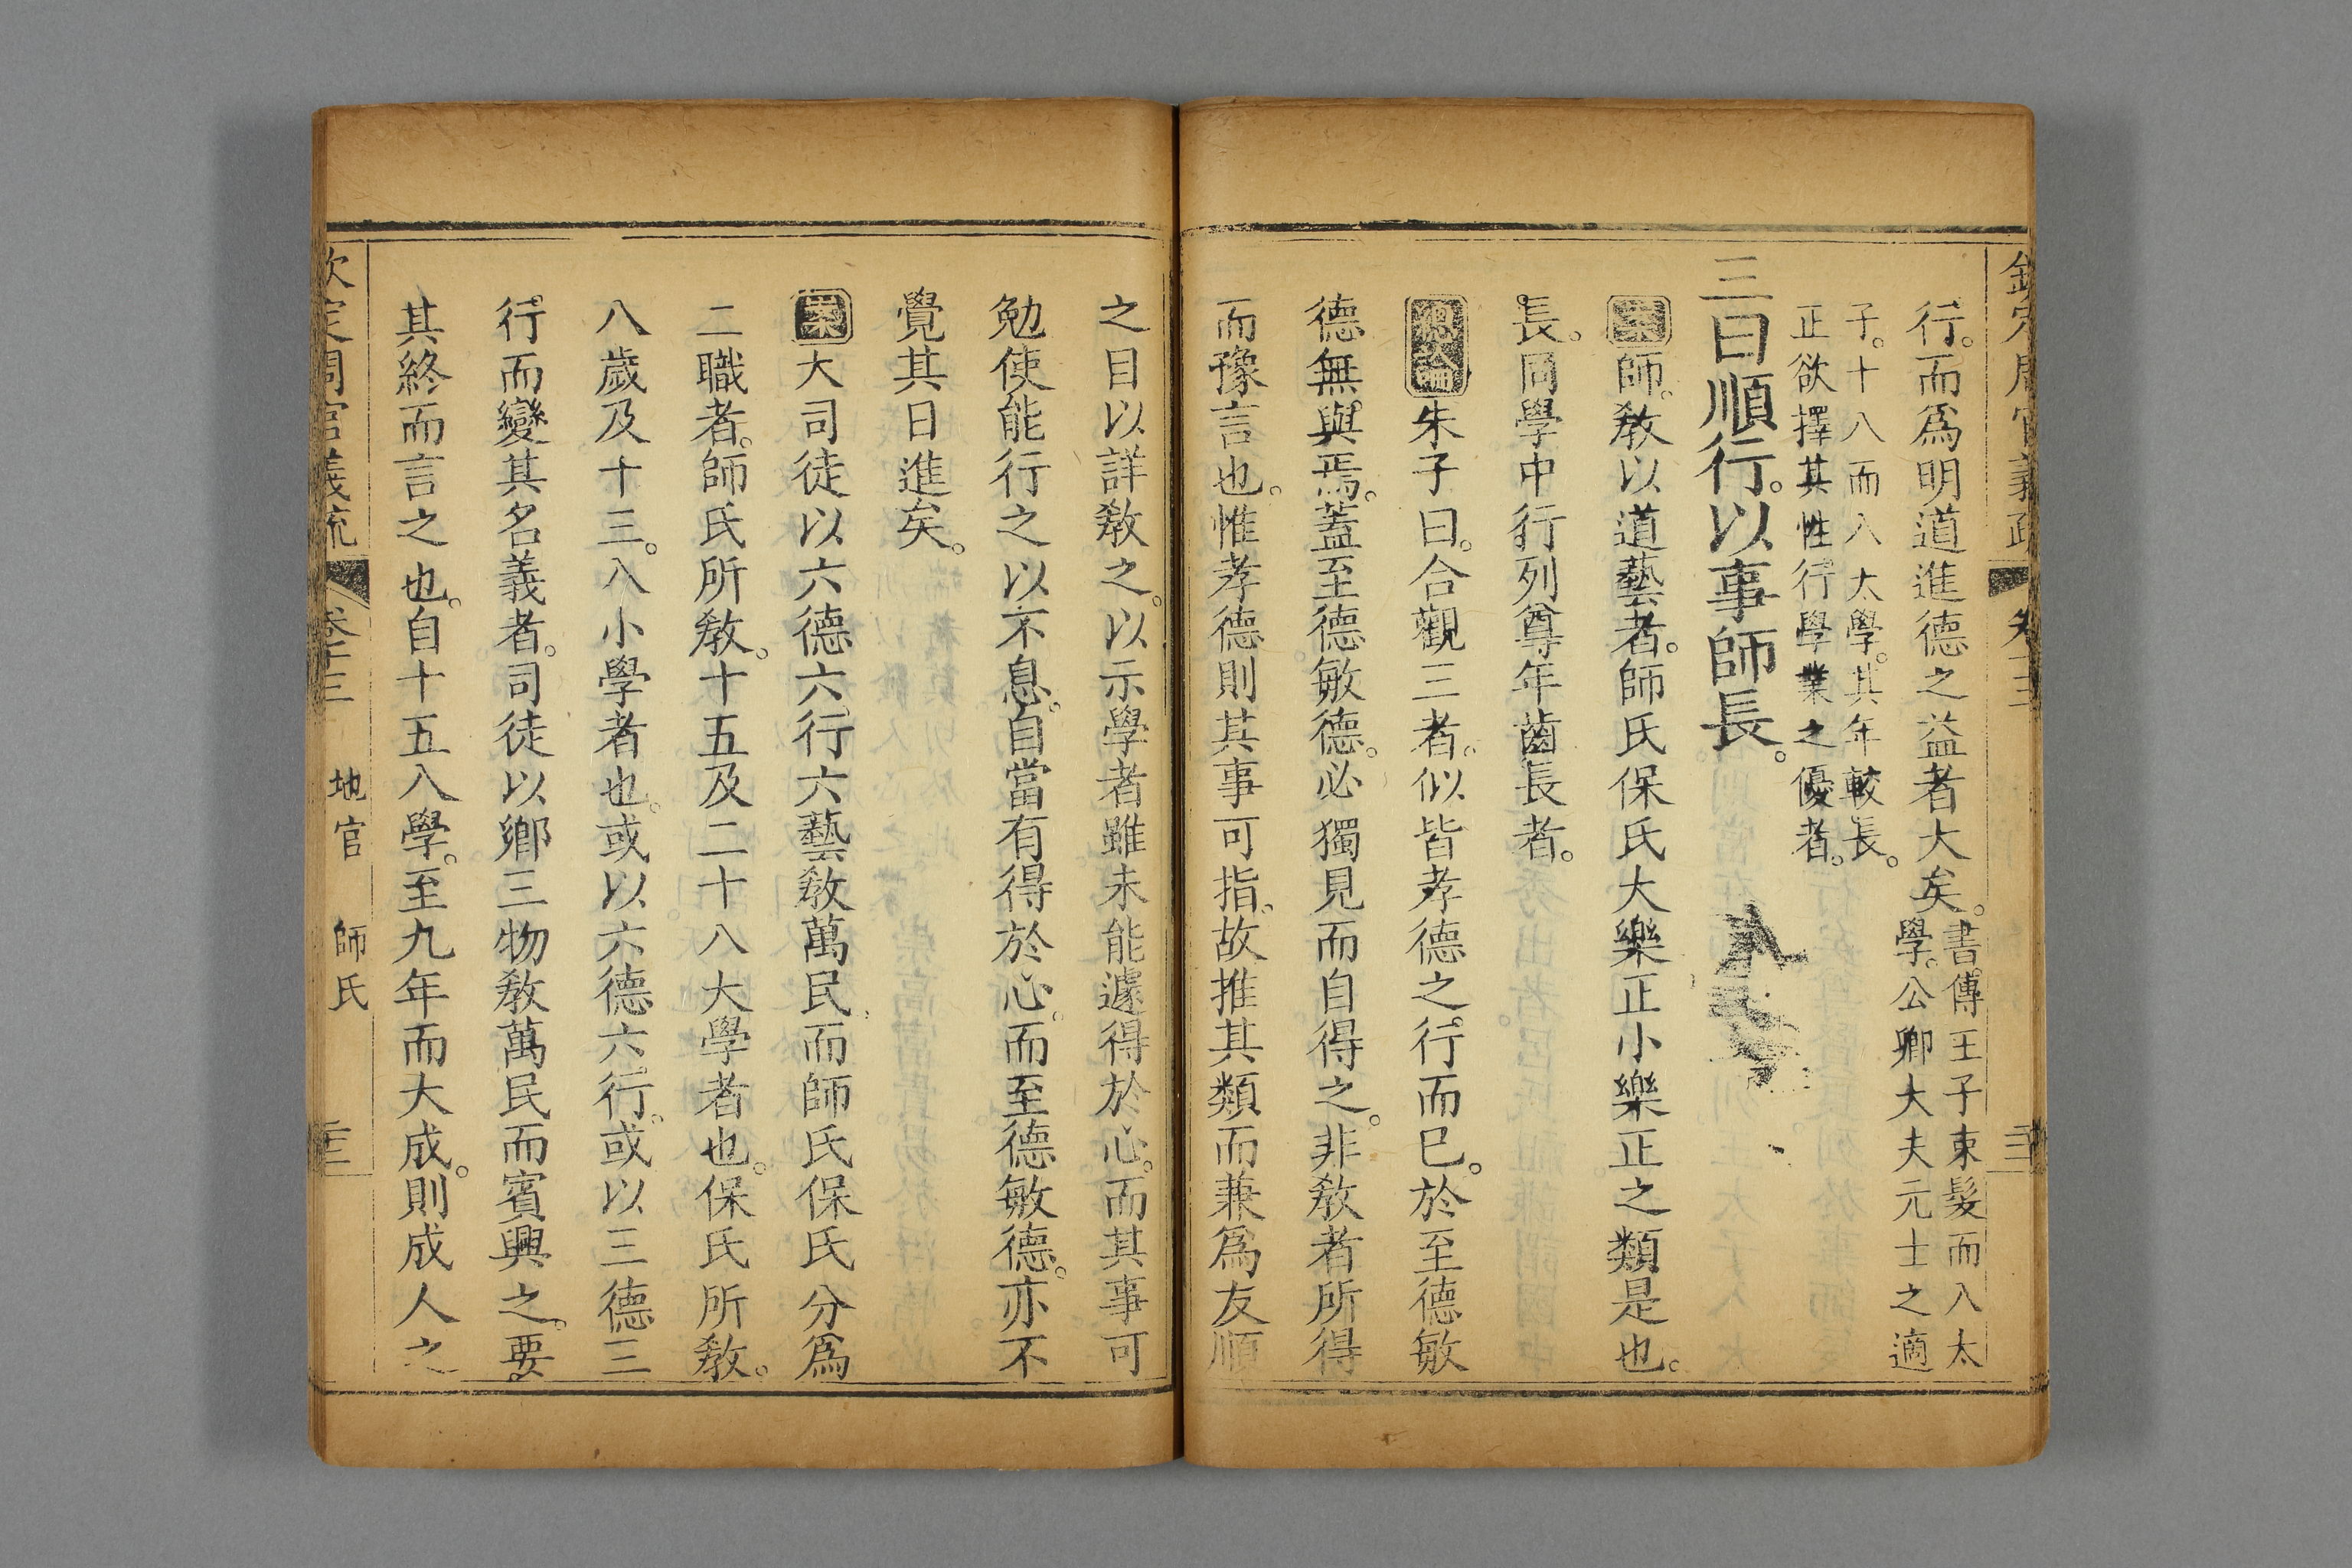 欽定周官義疏 卷十三
行。而為明道進德之益者大矣。書傳王子束髮而入太
學。公卿大夫元士之適
子。十八而入太學。其年較長。
正欲擇其性行學業之優者。
三曰順行。以事師長。
案師。教以道藝者。師氏保氏大樂正小樂正之類是也。
長。同學中行列尊年齒長者。
總論朱子曰。合觀三者。似皆孝德之行而已。於至德敏
德無與焉。蓋至德敏德。必獨見而自得之。非教者所得
而豫言也。惟孝德則其事可指。故推其類而兼為友順
之目以詳教之。以示學者雖未能遽得於心。而其事可
勉使能行之以不息。自當有得於心。而至德敏德。亦不
覺其日進矣。
案大司徒以六德六行六藝教萬民。而師氏保氏分為
二職者。師氏所教。十五及二十入大學者也。保氏所教。
八歲及十三。入小學者也。或以六德六行。或以三德三
行。而變其名義者。司徒以鄉三物教萬民而賓興之。要
其終而言之也。自十五入學。至九年而大成。則成人之
欽定周官義疏 卷十三 地官 師氏